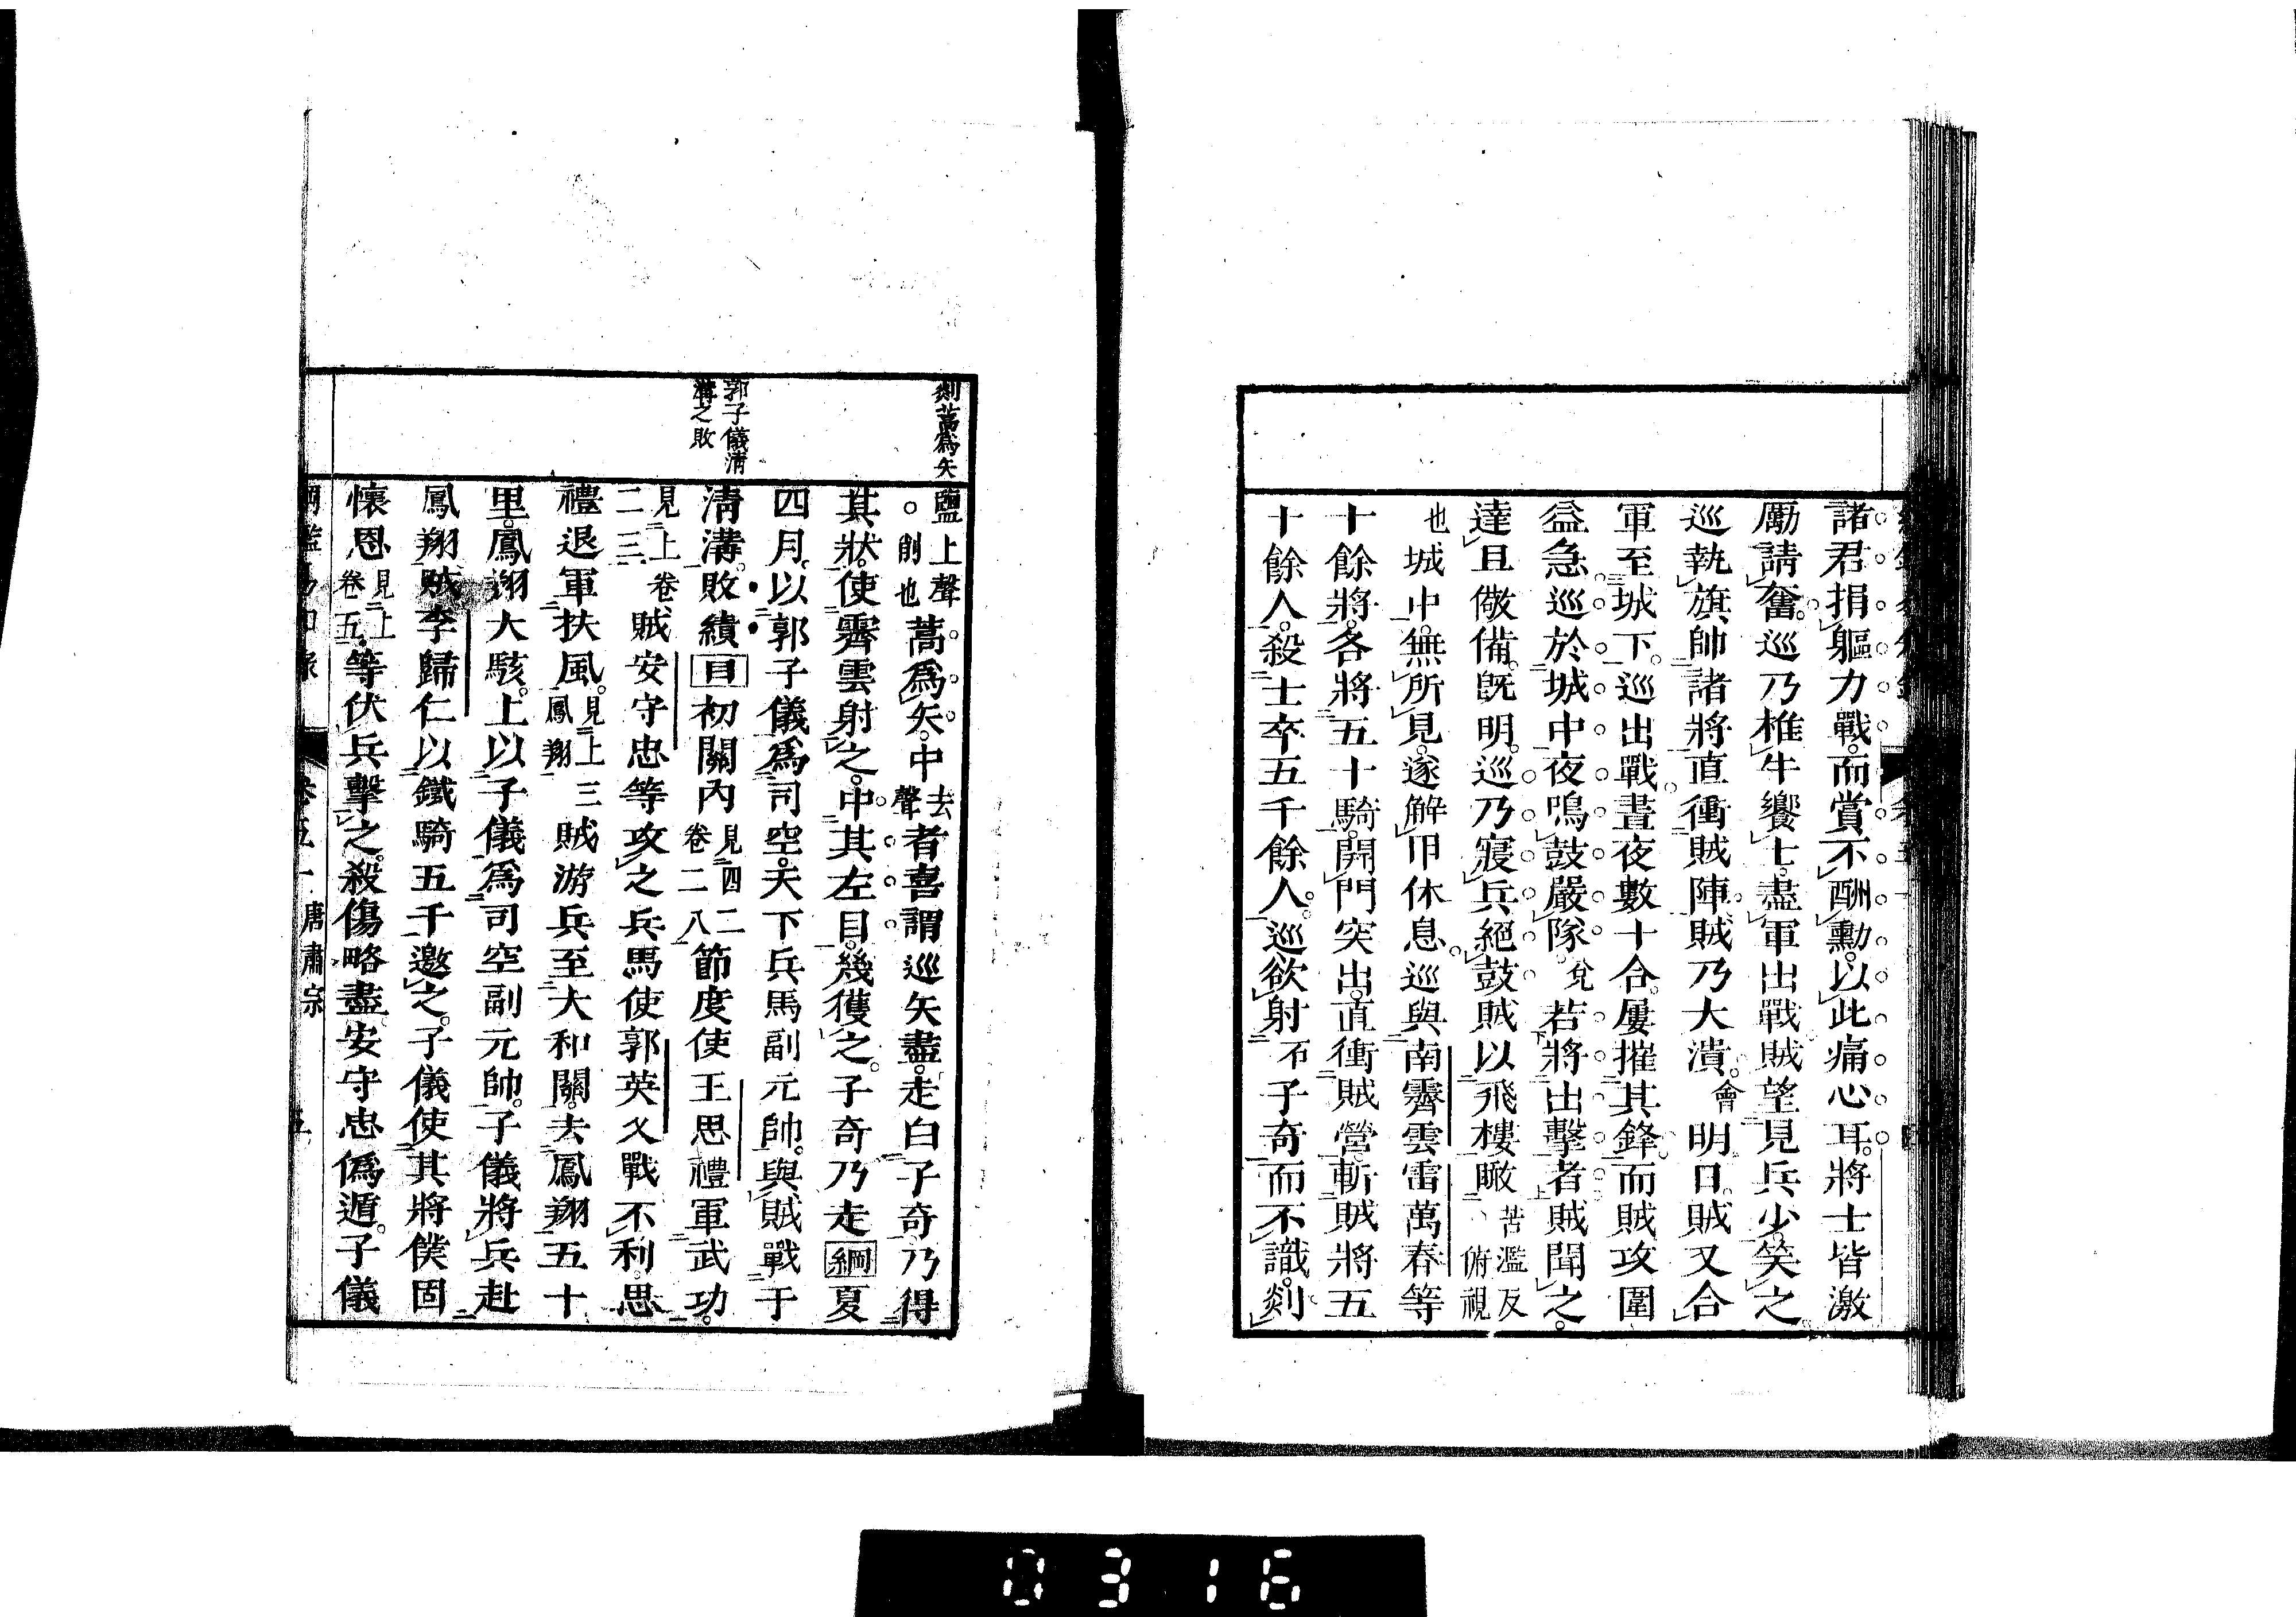 諸君捐軀力戰而賞不酬勳以此痛心耳將士皆激
厲請奮巡乃椎牛饗士盡軍出戰賊望見兵少笑之
巡執旗帥諸將直衝賊陣賊乃大潰會明日賊又合
軍至城下巡出戰晝夜數十合屢摧其鋒而賊攻圍
益急巡於城中夜鳴鼓嚴隊兌若將出擊者賊聞之
達且儆備旣明巡乃寢兵絕鼓賊以飛樓瞰苦濫反俯視
也城中無所見遂解甲休息巡與南霽雲雷萬春等
十餘將各將五十騎開門突出直衝賊營斬賊將五
十餘人殺士卒五千餘人巡欲射石子奇而不識剡
剡蒿爲矢
鹽上聲削也蒿爲矢中去聲者喜謂巡矢盡走白子奇乃得
其狀使霽雲射之中其左目幾獲之子奇乃走綱夏
四月以郭子儀爲司空天下兵馬副元帥與賊戰于
郭子儀淸
溝之敗
淸溝敗績目初關內見四二卷二八節度使王思禮軍武功
見上卷二三賊安守忠等攻之兵馬使郭英乂戰不利思
禮退軍扶風見上鳳翔三賊游兵至大和關去鳳翔五十
里鳳翔大駭上以子儀爲司空副元帥子儀將兵赴
鳳翔賊李歸仁以鐵騎五千邀之子儀使其將僕固
懷恩見上卷五等伏兵擊之殺傷略盡安守忠僞遁子儀
卷五十 唐肅宗 五
0316